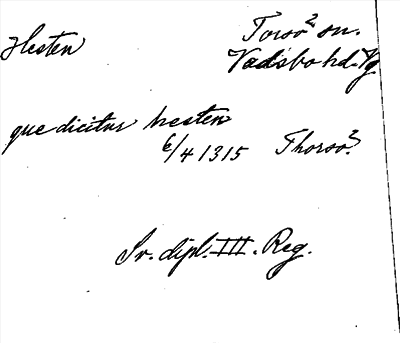 Hesten Torsö² sn.
Vadsbo hd. Vg
que dicitur hesten
6/4 1315 Thorsö?²
Sv. dipl. III. Reg.